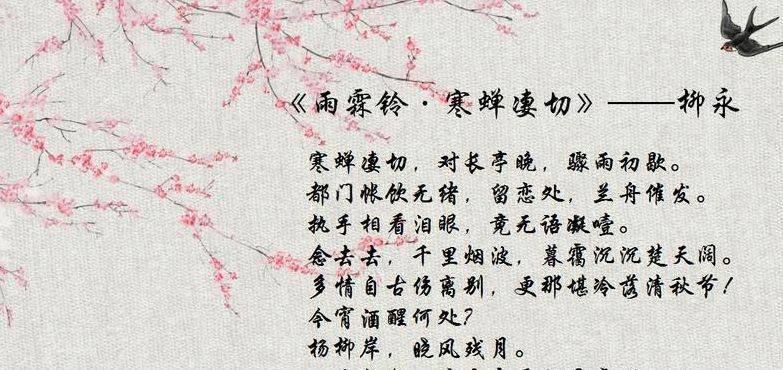 《雨霖铃·寒蝉凄切》——柳永
寒蝉凄切，对长亭晚，骤雨初歇。
都门帐饮无绪，留恋处，兰舟催发。
执手相看泪眼，竟无语凝噎。
念去去，千里烟波，暮霭沉沉楚天阔。
多情自古伤离别，更那堪冷落清秋节！
今宵酒醒何处？
杨柳岸，晓风残月。